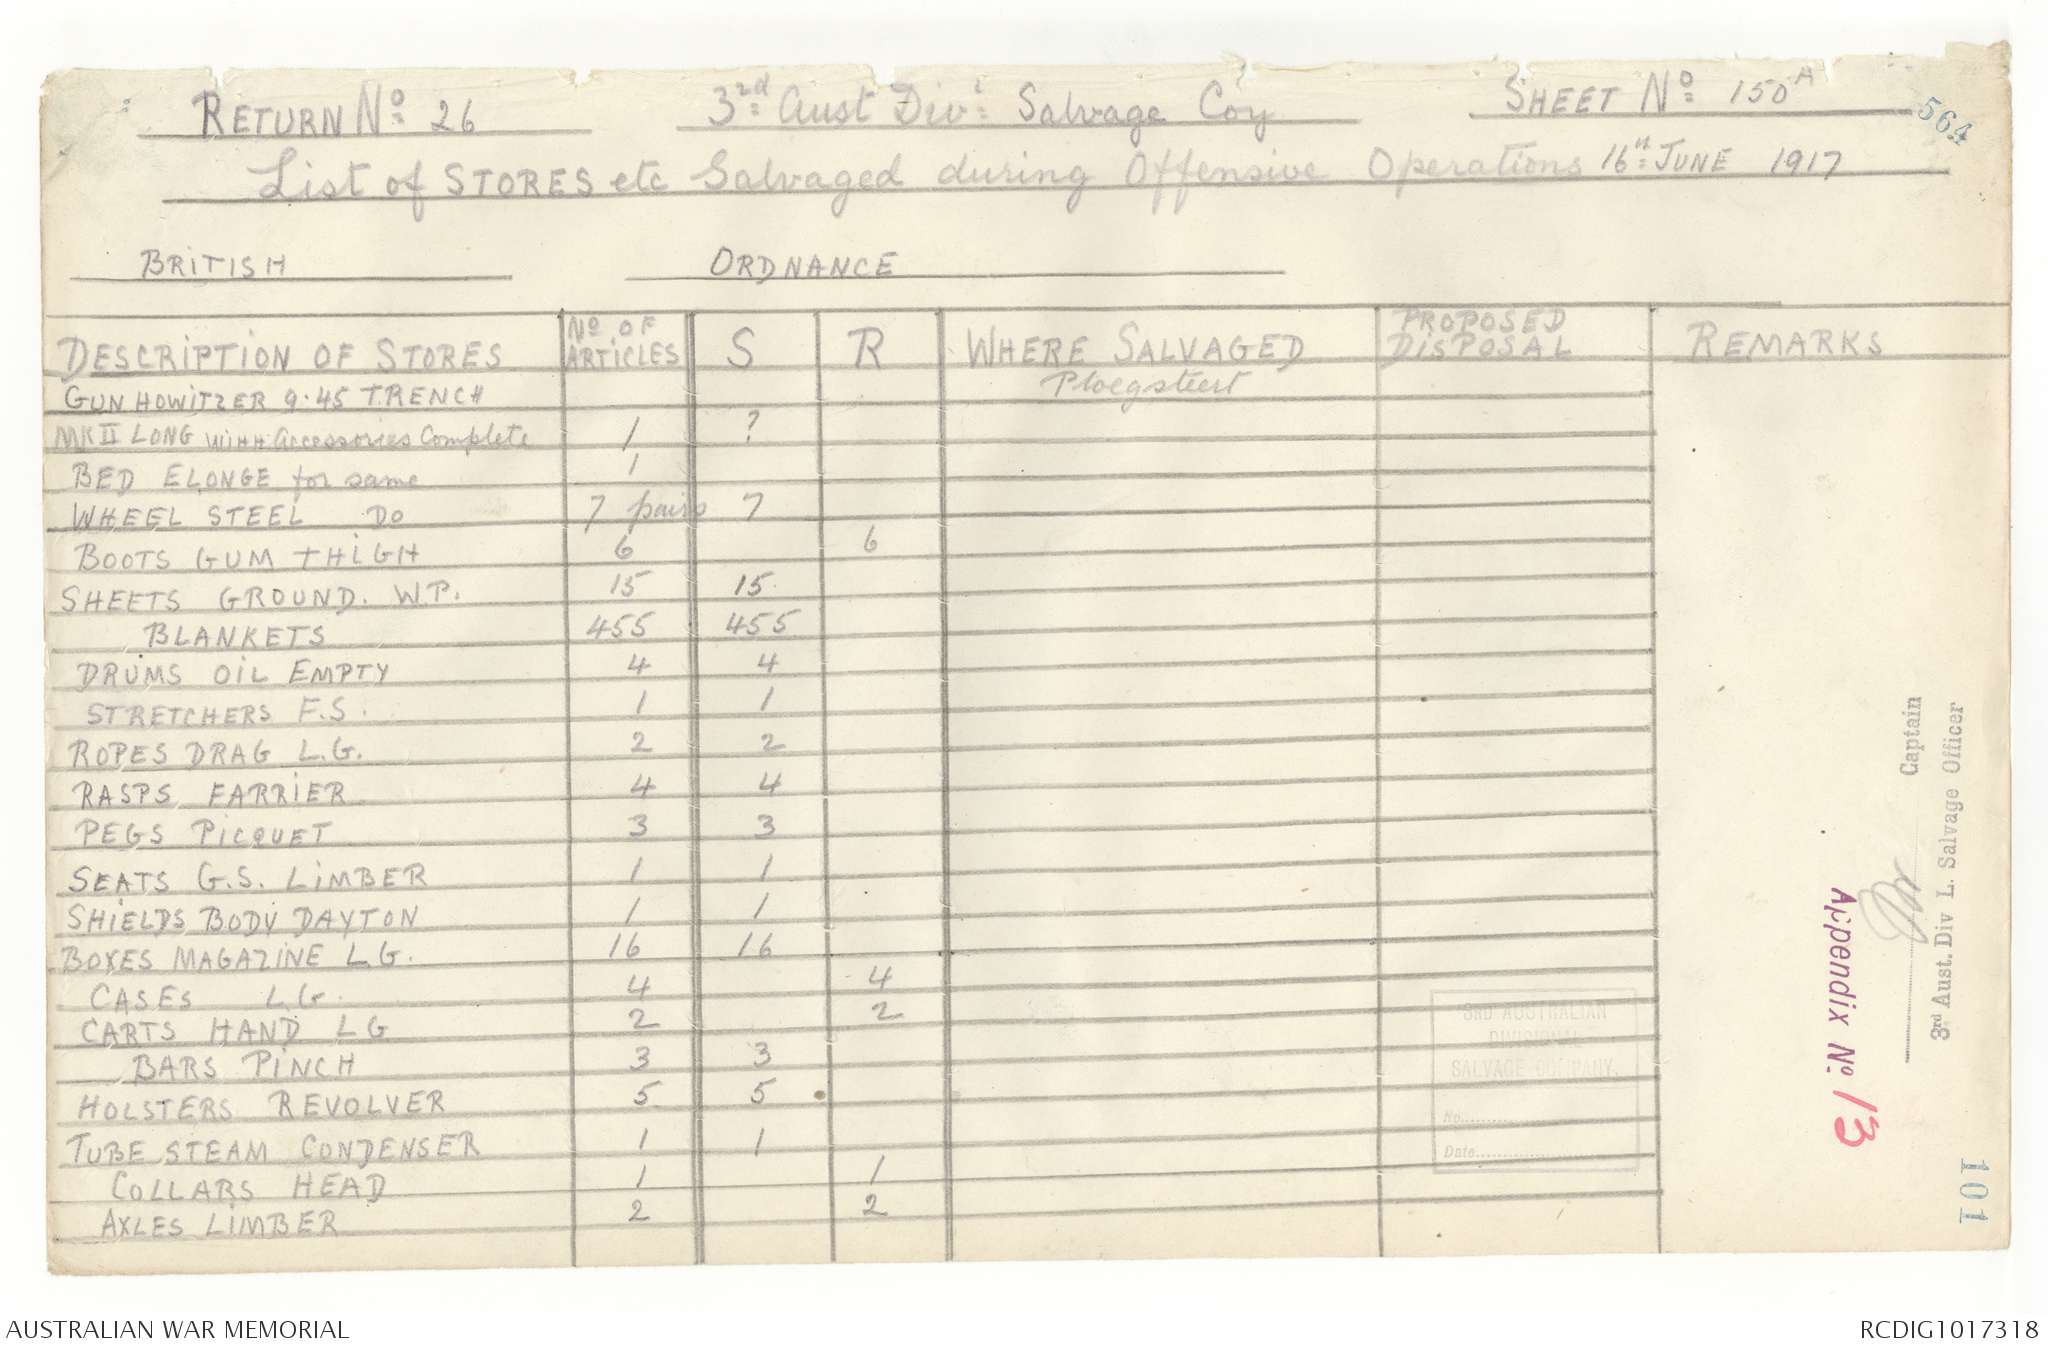 RETURN No. 26 3rd Aust Div. Salvage Coy SHEET No. 150A
564
List of STORES etc Salvaged during Offensive Operations 16th JUNE 1917
BRITISH ORDNANCE
DESCRIPTION OF STORES No OF ARTICLES S R WHERE SALVAGED PROPOSED DISPOSAL REMARKS
GUN HOWITZER 9.45 TRENCH Ploegsteert
MK II LONG WITH Accessories Complete 1 ?
BED ELONGE for same 1
WHEEL STEEL DO 7 pairs 7
BOOTS GUM THIGH 6 6
SHEETS GROUND. W.P. 15 15.
BLANKETS 455 455
DRUMS OIL EMPTY 4 4
STRETCHERS F.S. 1 1
ROPES DRAG L.G. 2 2
RASPS FARRIER 4 4
PEGS PICQUET 3 3
SEATS G.S. LIMBER 1 1
SHIELDS BODY DAYTON 1 1
BOXES MAGAZINE L.G. 16 16
CASES L.G. 4 4
CARTS HAND LG 2 2
BARS PINCH 3 3
HOLSTERS REVOLVER 5 5
TUBE STEAM CONDENSER 1 1
COLLARS HEAD 1 1
AXLES LIMBER 2 2
3RD AUSTRALIAN
DIVISIONAL
SALVAGE COMPANY.
No..............
Date..............
Appendix No. 13
Captain
3rd Aust. Div L. Salvage Officer
101
AUSTRALIAN WAR MEMORIAL RCDIG1017318